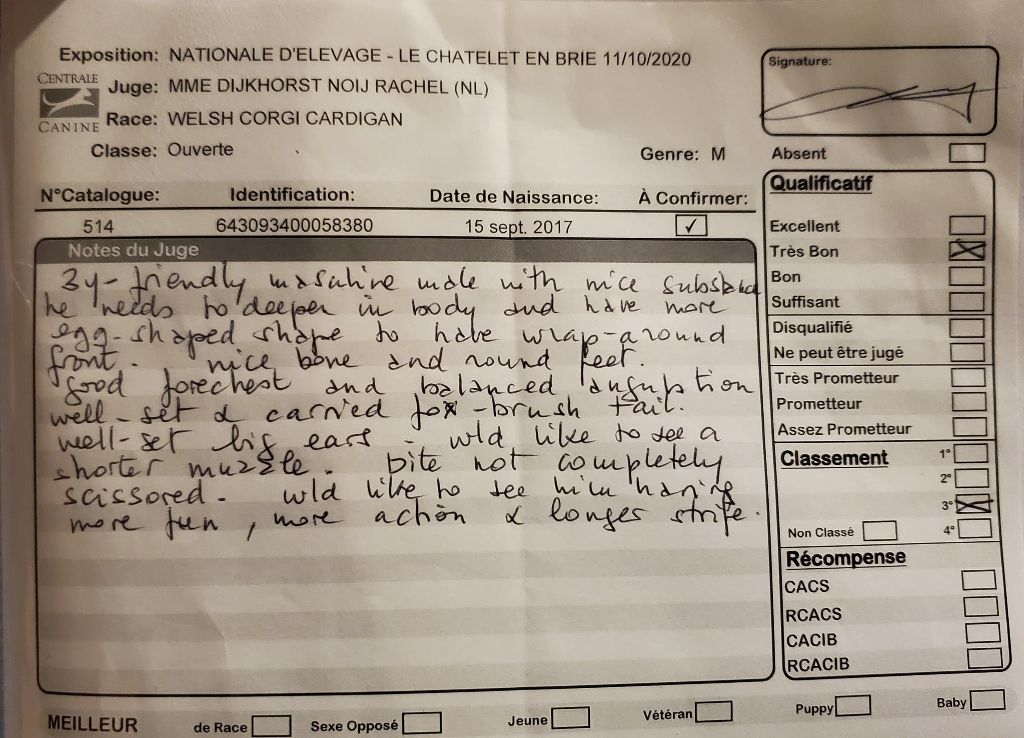 Exposition: NATIONALE D'ELEVAGE - LE CHATELET EN BRIE 11/10/2020
CENTRALE
CANINE
Juge: MME DIJKHORST NOIJ RACHEL (NL)
Race: WELSH CORGI CARDIGAN
Classe: Ouverte
Genre: M
N°Catalogue: Identification: Date de Naissance: À Confirmer:
514 643093400058380 15 sept. 2017 ✓
Notes du Juge
3y - friendly masculine male with nice substance
he needs to deeper in body and have more
egg-shaped shape to have wrap-around
front. nice bone and round feet.
good forechest and balanced angulation
well-set & carried fox-brush tail.
well-set big ears. wld like to see a
shorter muzzle. bite not completely
scissored. wld like to see him having
more fun, more action & longer stride.
Signature:
Absent
Qualificatif
Excellent
Très Bon
Bon
Suffisant
Disqualifié
Ne peut être jugé
Très Prometteur
Prometteur
Assez Prometteur
Classement
1°
2°
3°
Non Classé 4°
Récompense
CACS
RCACS
CACIB
RCACIB
MEILLEUR de Race Sexe Opposé Jeune Vétéran Puppy Baby